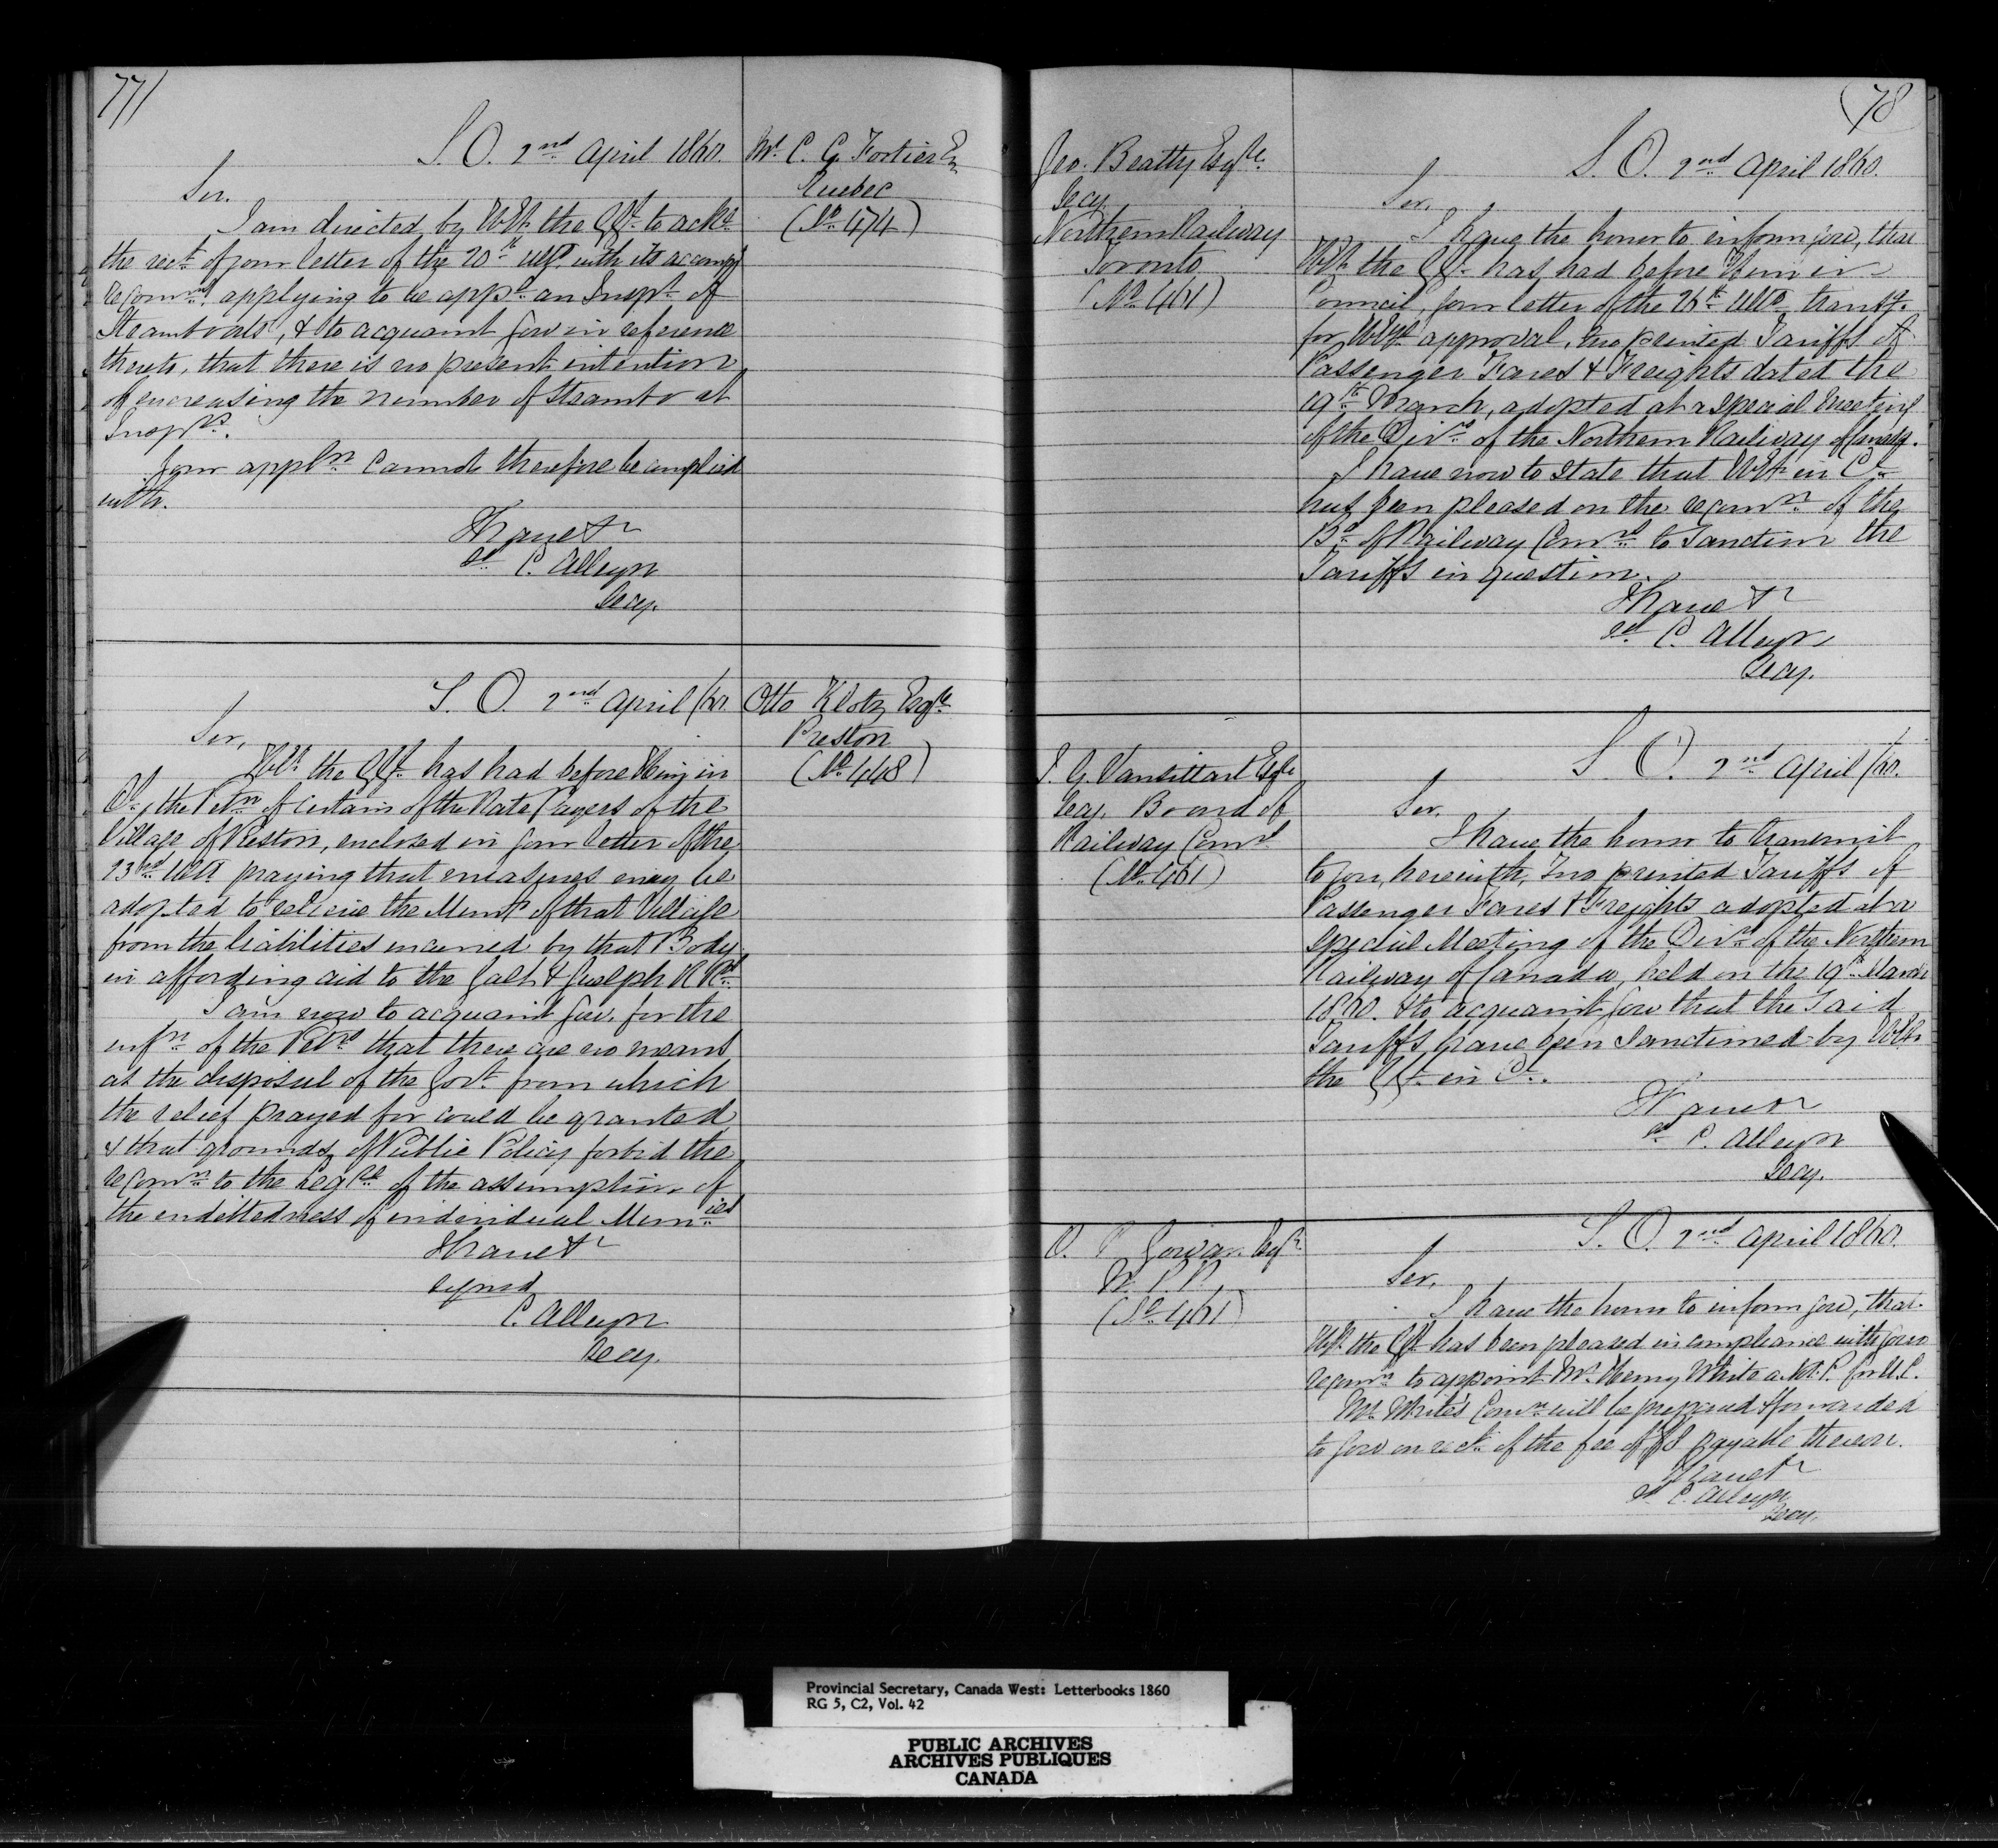 77
S. O. 2nd April 1860.
Mr. C. G. Fortier
Quebec
(No. 474)
Sir.
I am directed by H.E. the G.G. to acke
the rect. of your letter of the 20th ulto. with its accompg
recomns. applying to be appd. an Inspr. of
Steamboats, & to acquaint you in reference
thereto, that there is no present intention
of encreasing the number of Steamboat
Insprs.
Your appln. cannot therefore be complied
with.
I have &c
sd. C. Alleyn
Secy.
S. O. 2nd April /60.
Otto Klotz Esqre
Preston
(No. 448)
Sir,
H.E. the G.G. has had before Him in
Cl., the Petn. of certain of the Rate Payers of the
Village of Preston, enclosed in your letter of the
23rd ulto praying that measures may be
adopted to relieve the Muny. of that Village
from the liabilities incurred by that Body
in affording aid to the Galt & Guelph R Rd.
I am now to acquaint you, for the
infn. of the Petrs. that there are no means
at the disposal of the Govt. from which
the relief prayed for could be granted,
& that grounds of Public Policy forbid the
recomn. to the Legre. of the assumption of
the endebtedness of individual Munies.
I have &c
signed
C. Alleyn
Secy.
78
Geo. Beatty Esqre.
Secy.
Northern Railway
Toronto
(No. 461)
S. O. 2nd April 1860.
Sir,
I have the honor to inform you, that
H.E. the G.G. has had before Him in
Council, your letter of the 26th ulto. transg.
for H.E's approval, two printed Tariffs of
Passenger Fares & Freights dated the
19th March, adopted at a special Meeting
of the Dirs. of the Northern Railway of Canada.
I have now to state that H.E. in Cl.
has been pleased on the recomn. of the
Bd. of Railway Comrs. to Sanction the
Tariffs in question.
I have &c
sd. C. Alleyn
Secy.
J. G. Vansittart Esqre
Secy. Board of
Railway Comrs
(No. 461)
S. O. 2nd April /60.
Sir.
I have the honor to transmit
to you, herewith, Two printed Tariffs of
Passenger Fares & Freights adopted at a
special Meeting of the Dirs. of the Northern
Railway of Canada, held on the 19th March
1860. & to acquaint you that the Said
Tariffs have been Sanctioned by H.E.
the G.G. in Cl.
I have &c
sd. C. Alleyn
Secy.
O. R. Gowan Esqr.
M. P. P.
(No. 461)
S. O. 2nd April 1860.
Sir,
I have the honor to inform you, that
H.E. the G.G. has been pleased in compliance with your
recomn. to appoint Mr. Henry White a N. P. for U. C.
Mr. White's Comn. will be prepared & forwarded
to you on rect. of the fee of payable thereon.
I have &c
sd. C. Alleyn
Secy.
Provincial Secretary, Canada West: Letterbooks 1860
RG 5, C2, Vol. 42
PUBLIC ARCHIVES
ARCHIVES PUBLIQUES
CANADA